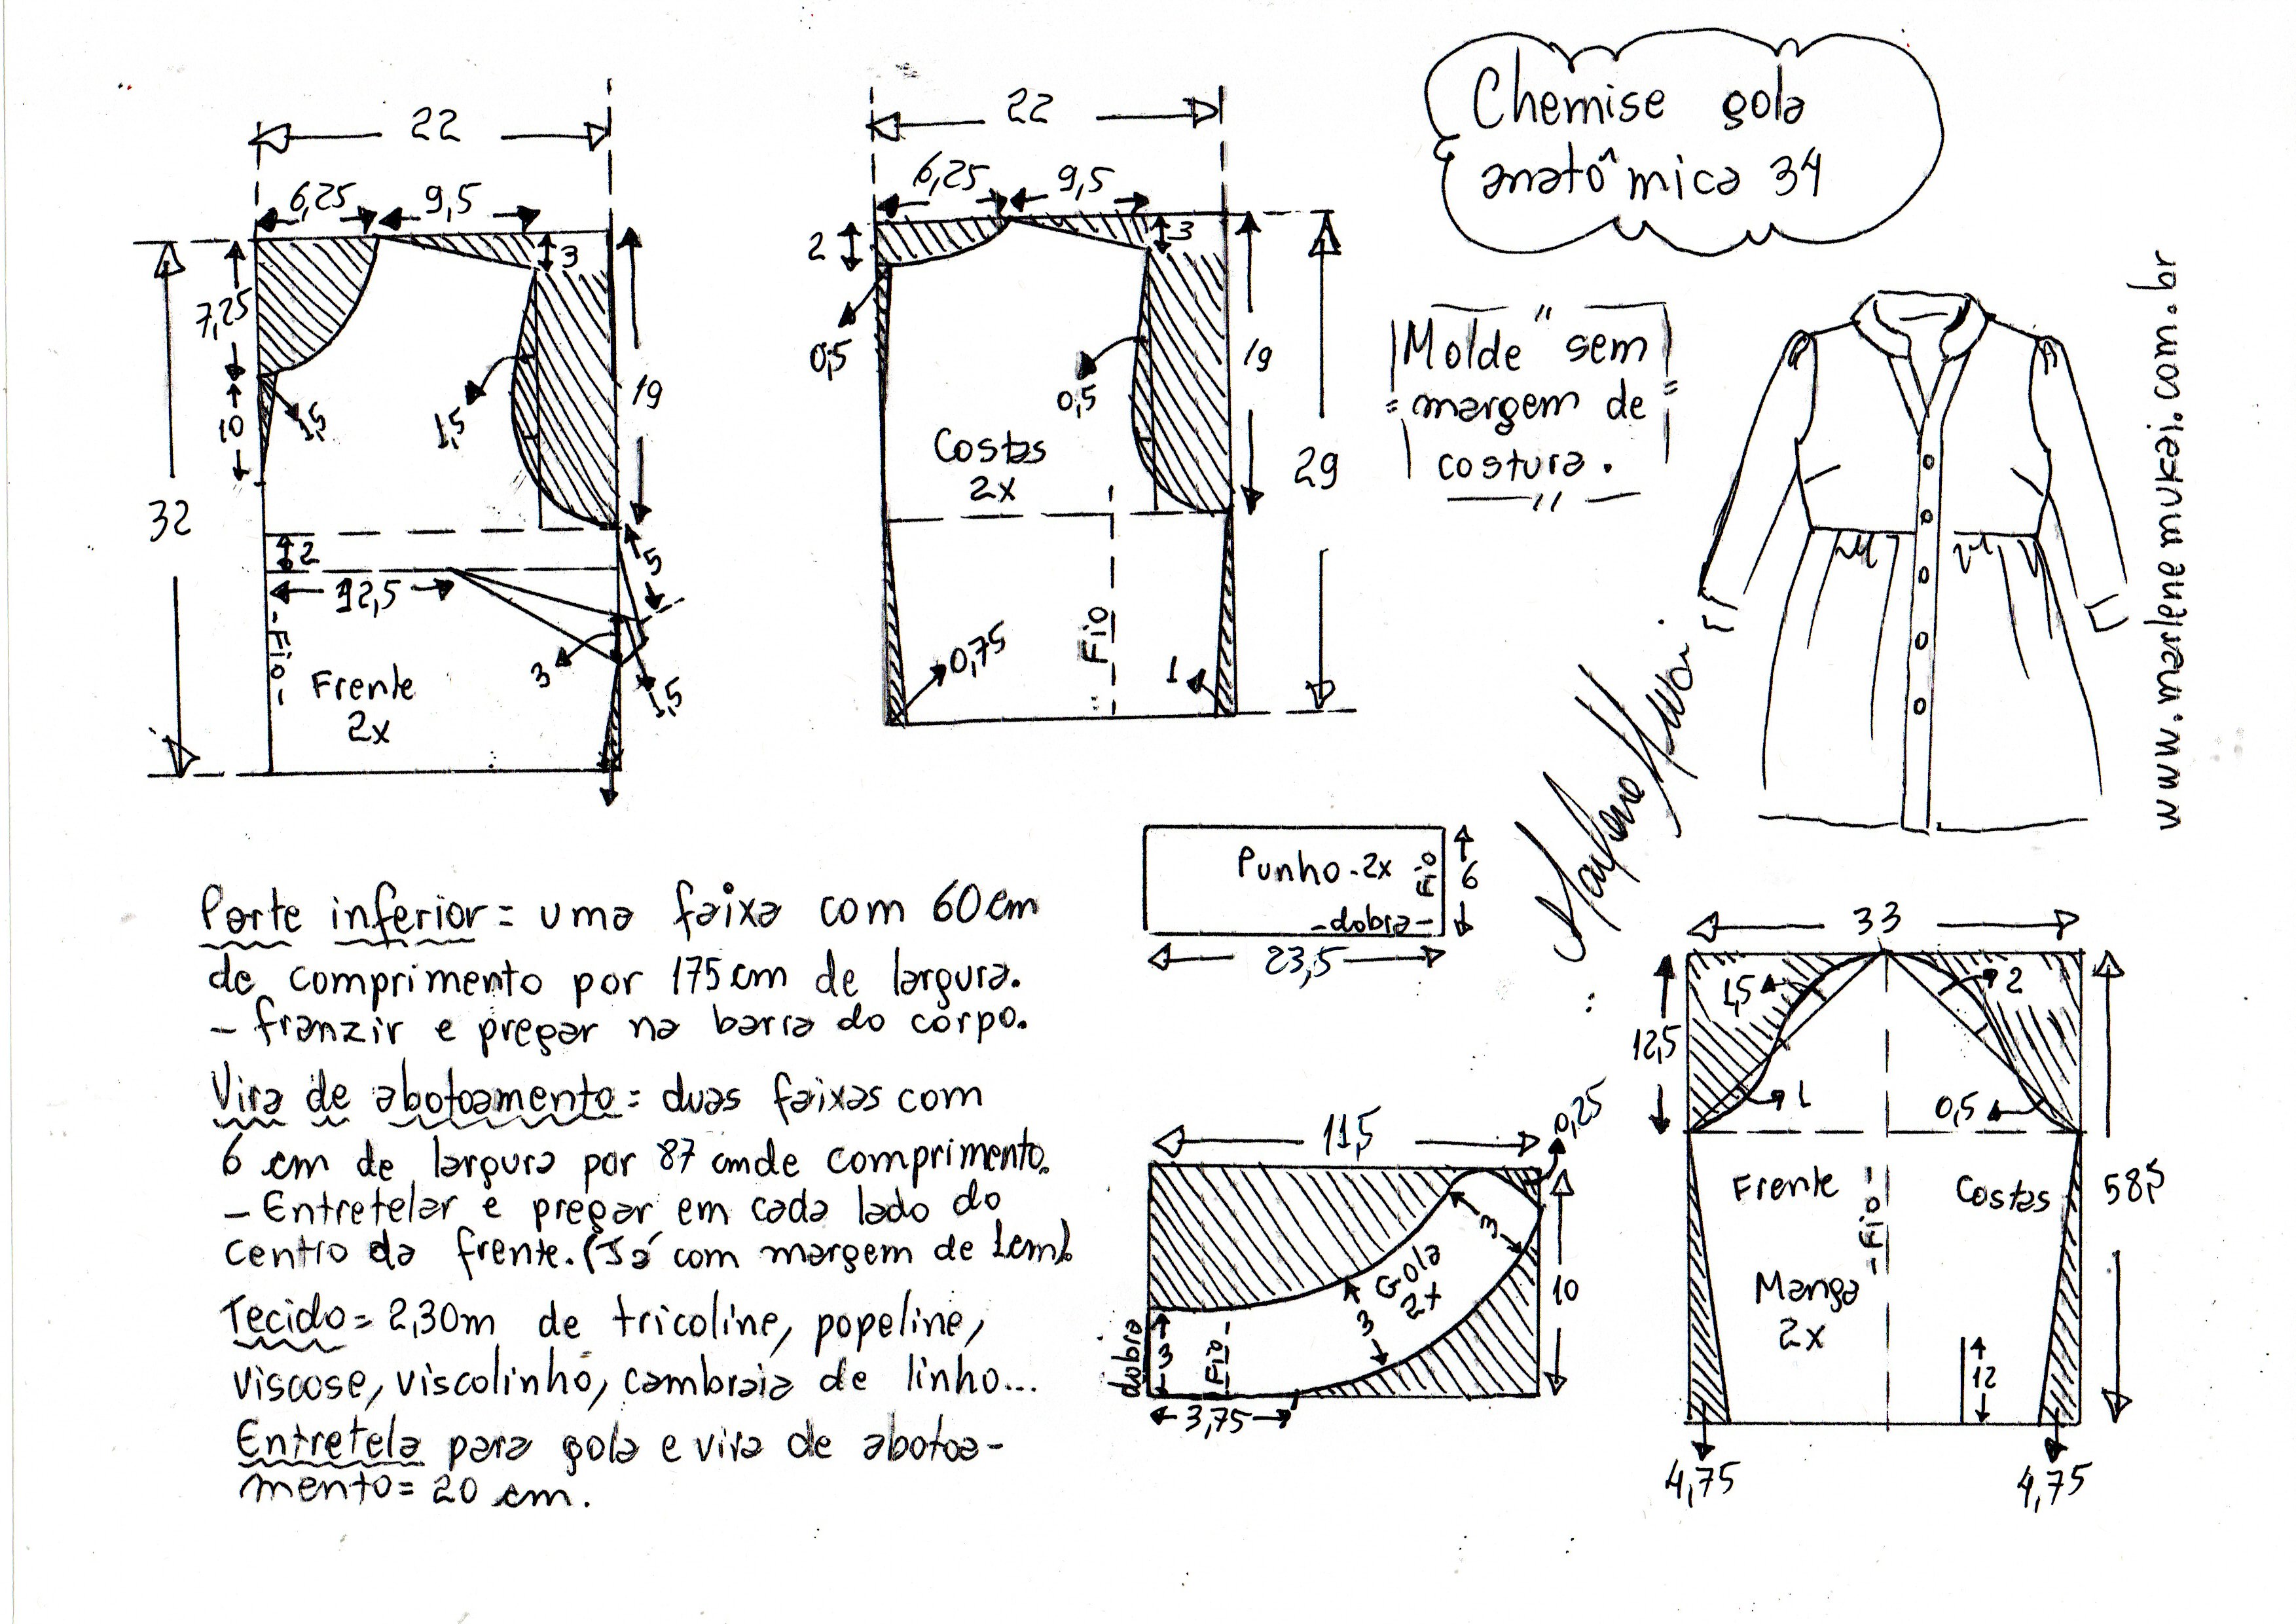 Chemise gola
anatômica 34
"Molde" sem
margem de
costura.
www.marlenemukai.com.br
Marlene Mukai
22
6,25
9,5
3
7,25
10
1,5
1,5
19
32
2
12,5
5
3
1,5
-Fio-
Frente
2x
22
6,25
9,5
2
3
0,5
0,5
19
29
Costas
2x
Fio
0,75
1
Punho-2x
Fio
6
-dobra-
23,5
Parte inferior = uma faixa com 60cm
de comprimento por 175cm de largura.
- franzir e pregar na barra do corpo.
Vira de abotoamento = duas faixas com
6 cm de largura por 87 cm de comprimento.
- Entretelar e pregar em cada lado do
centro da frente. (Já com margem de 1cm).
Tecido = 2,30m de tricoline, popeline,
viscose, viscolinho, cambraia de linho...
Entretela para gola e vira de abotoa-
mento = 20 cm.
11,5
0,25
3
Gola
2x
3
10
dobra
3
Fio-
3,75
33
1,5
2
12,5
1
0,5
Frente
-Fio-
Costas
58,5
Manga
2x
12
4,75
4,75